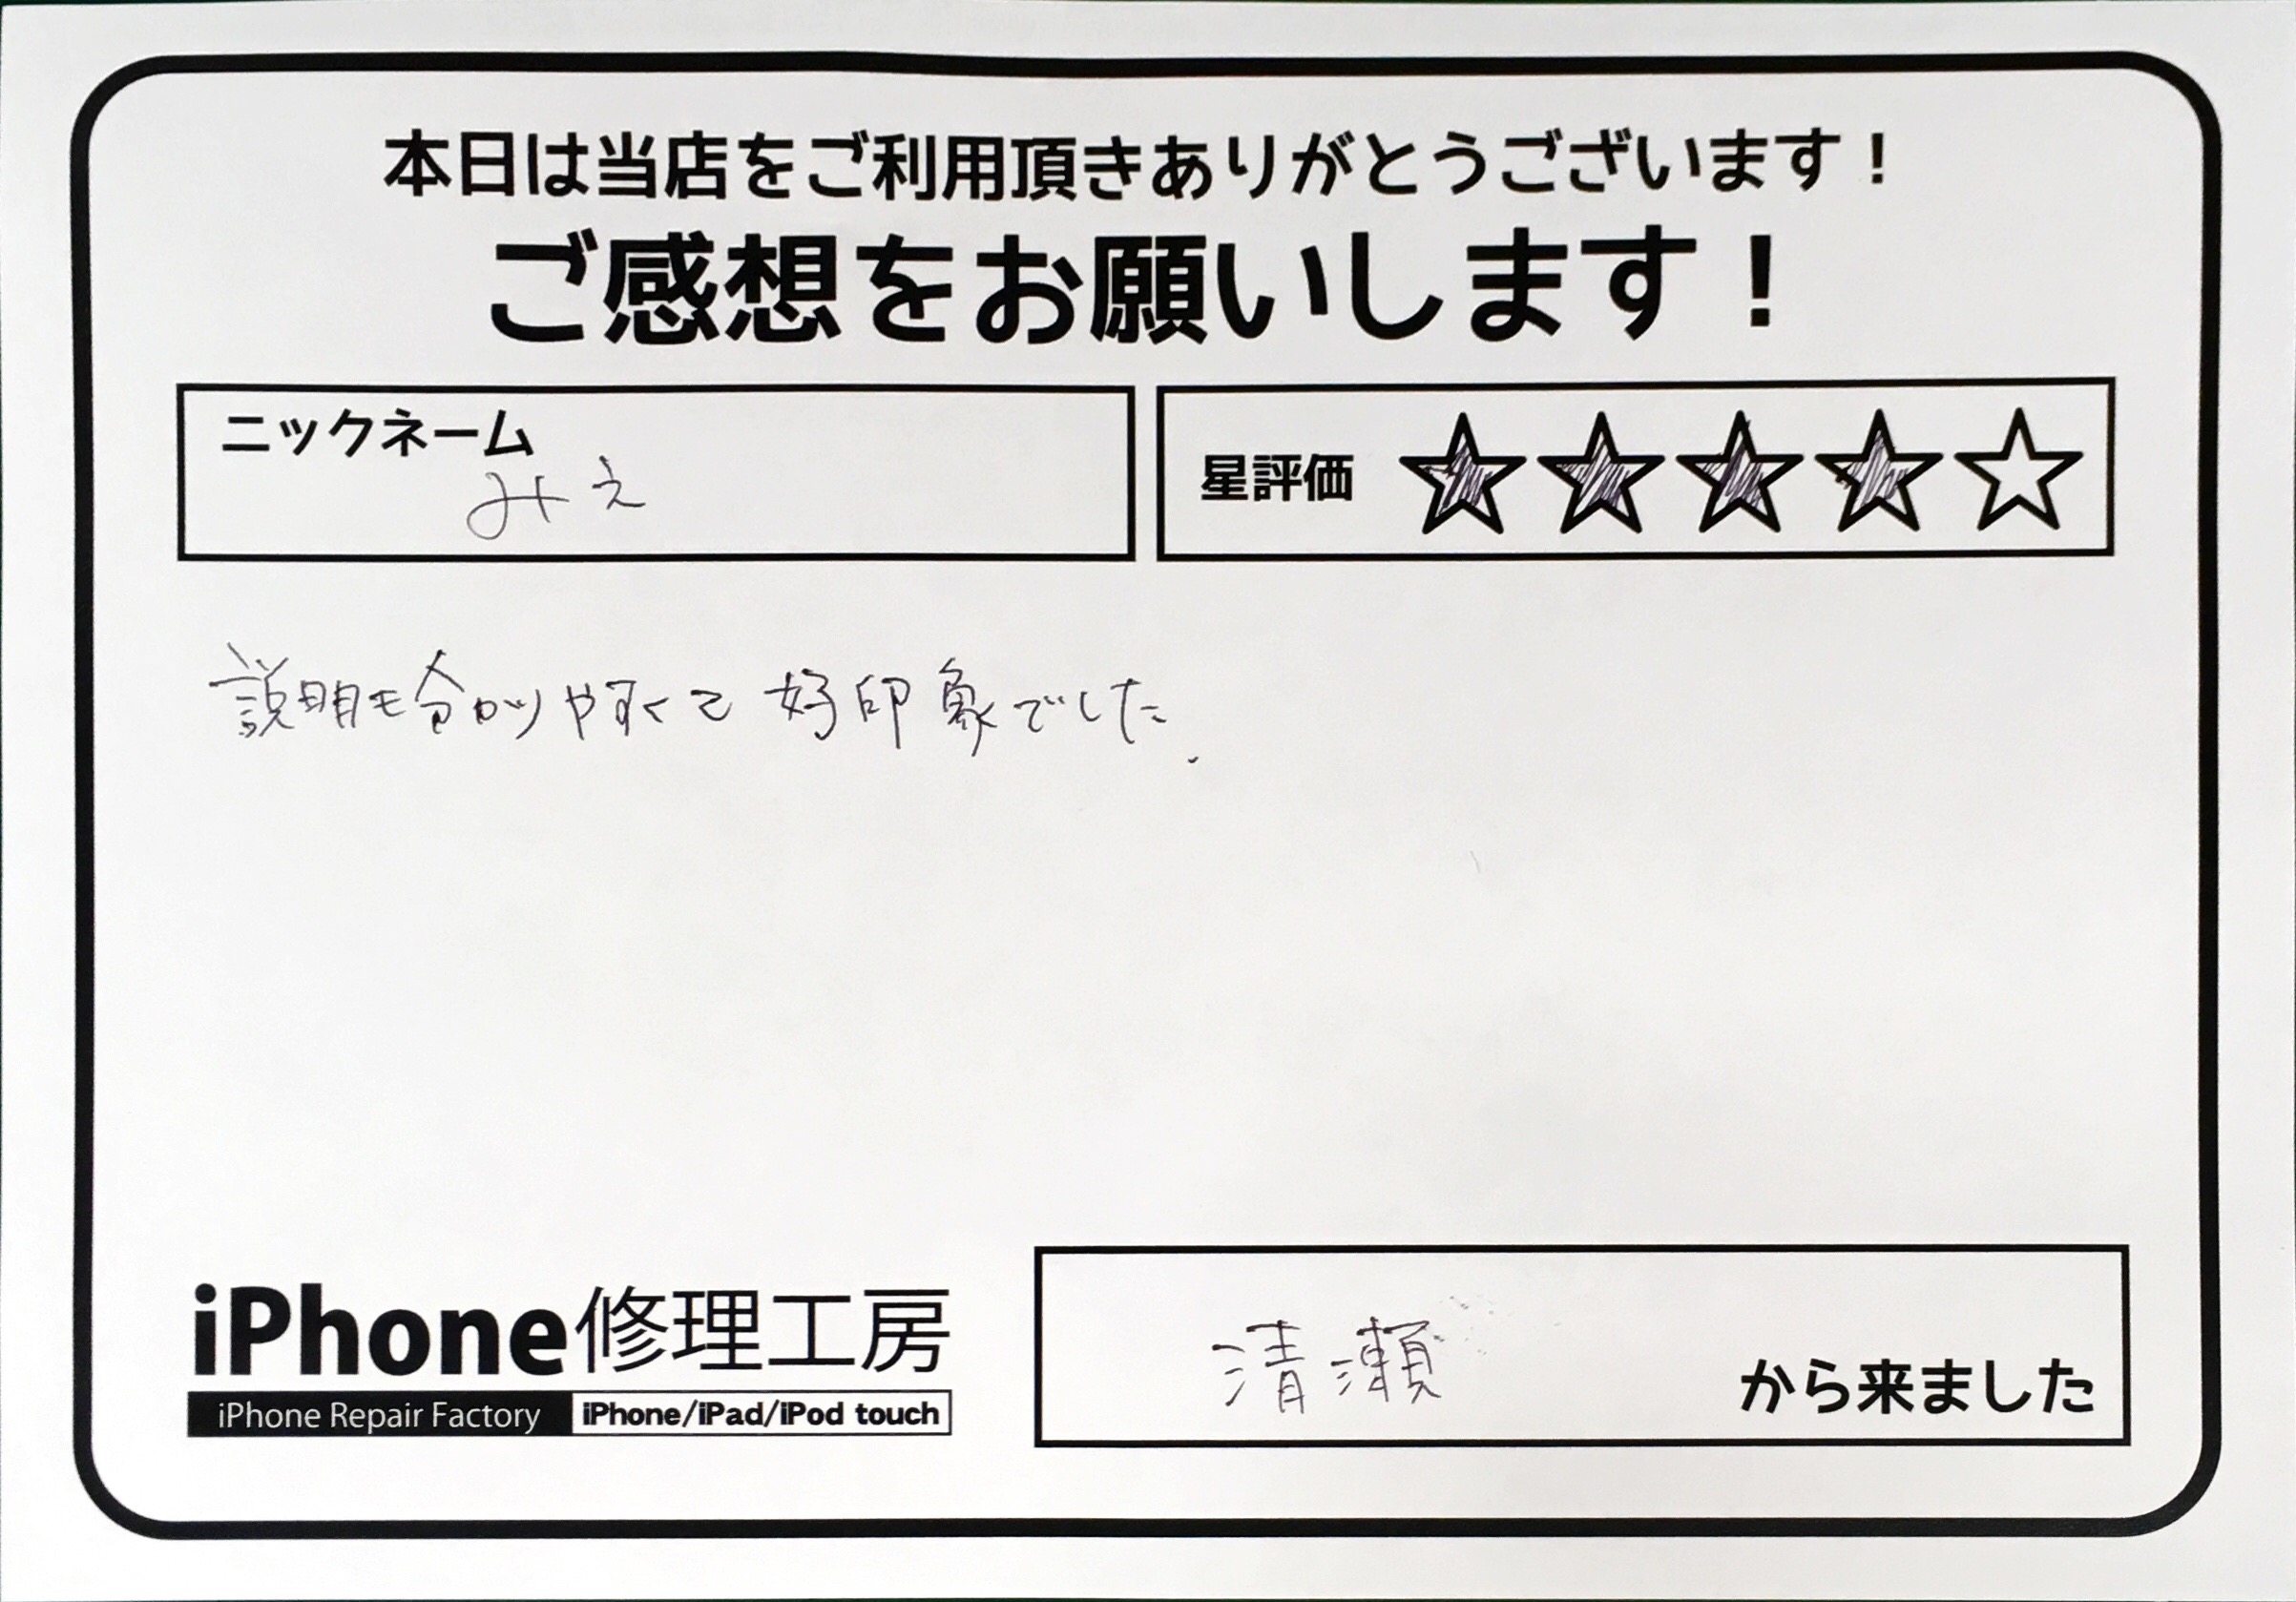 本日は当店をご利用頂きありがとうございます！
ご感想をお願いします！
ニックネーム
みえ
星評価 ★★★★☆
説明も分かりやすくて好印象でした.
iPhone修理工房
iPhone Repair Factory iPhone/iPad/iPod touch
清瀬 から来ました